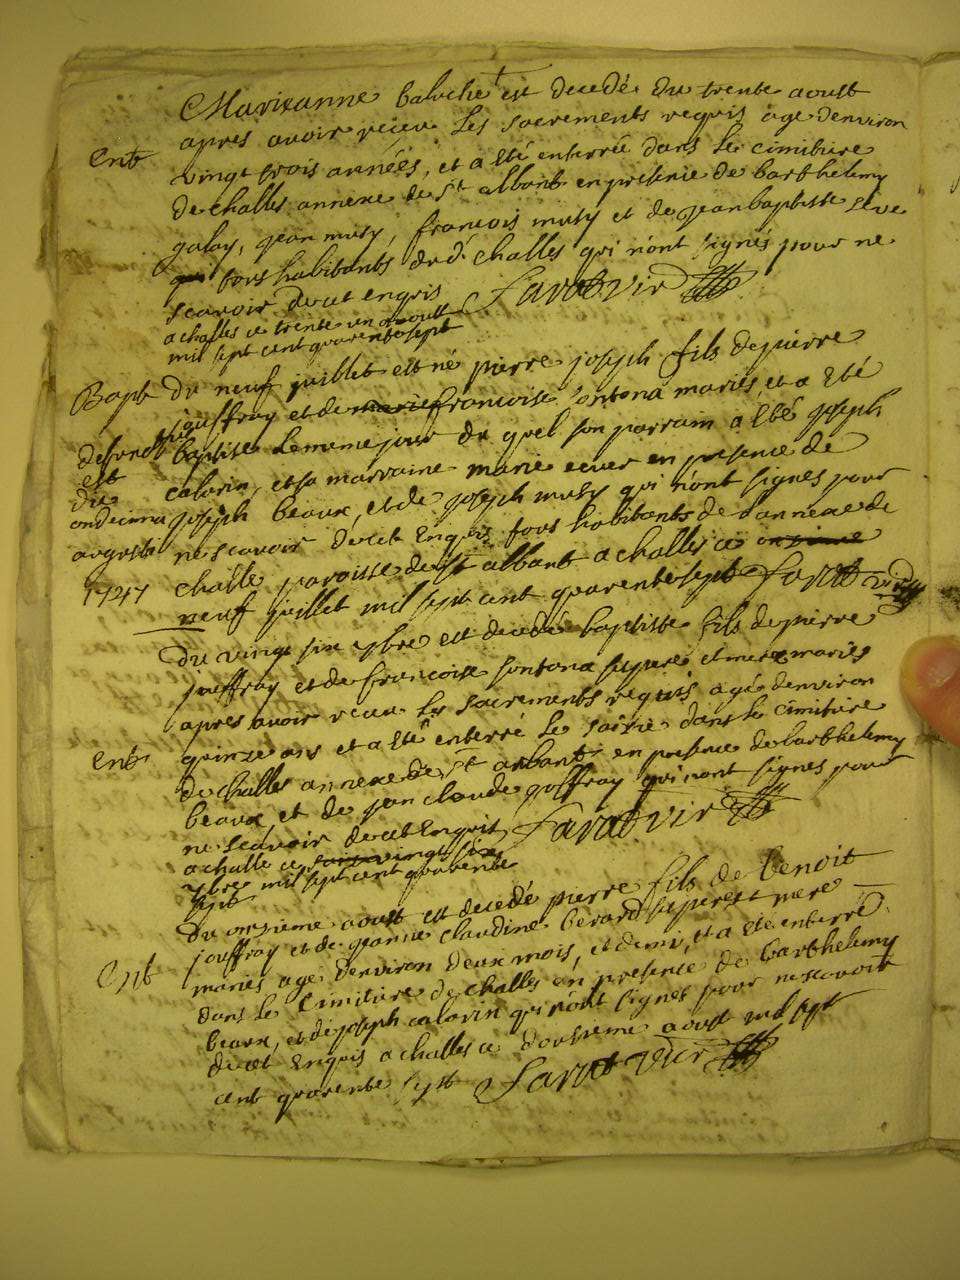 Marieanne baluchet est decedé du trente aoust
apres avoir reçeu les sacrements requis age denviron
Entt
vingt trois années, et a été enterrée dans le cimitiere
de challes annexe de St albant en présence de barthelemy
galay, jean musy, francois musy et de jean baptiste
tous habitants dud challes qui n'ont signés pour ne
scavoir de cet enquis Sarrat vic
a challes ce trente un aoust
mil sept cent quarente sept
Bapt du neuf juillet est né pierre joseph fils de pierre
jouffray et de francoise fontona mariés et a été
baptise le meme jour du quel son parrain a été joseph
calarin, et sa marraine marie en presence de
joseph beaux, et de joseph musy qui n'ont signés pour
ne scavoir de cet Enquis tous habitants de l'annexe de
challe paroisse de St albant a challes ce onzieme
neuf juillet mil sept cent quarente sept Sarrat vic
defunct
est
die
undecima
augusti
1747
du vingt six 7bre est decedé baptiste fils de pierre
jouffray et de francoise fontona ses pere et mere mariés
apres avoir receu les sacrements requis agé denviron
Entt
quinze ans et a été enterré le dans le cimitiere
de challes annexe de St albant en presence de barthelemy
beaux et de jean claude joffray qui n'ont signés pour
ne scavoir de cet Enquis Sarrat vic
a challe ce vingt six
7bre mil sept cent quarente
sept
du onzieme aoust est decedé pierre fils de benoit
jouffray et de jeanne claudine berard ses pere et mere
Entt
mariés age denviron deux mois, et demi, et a été enterré
dans le cimitiere de challes en presence de barthelemy
beaux, et de joseph calarin qui n'ont signes pour ne scavoir
de cet Enquis a challes ce douzieme aoust mil sept
cent quarente sept Sarrat vic